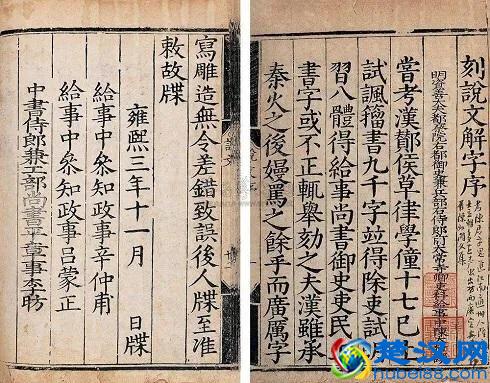 刻說文解字序
都察院右都御史兼兵部右侍郎
嘗考漢鄼侯草律學僮十七巳上
試諷籀書九千字並得除吏試用
習八體得給事尚書御史吏民
書字或不正輒舉劾之夫漢雖承
秦火之後嫚罵之餘乎而廣厲字
寫雕造無令差錯致誤後人牒至准
敕故牒
雍熙三年十一月 日牒
給事中參知政事辛仲甫
給事中參知政事呂蒙正
中書侍郎兼工部尚書平章事李昉
楚汉网
hubei88.com